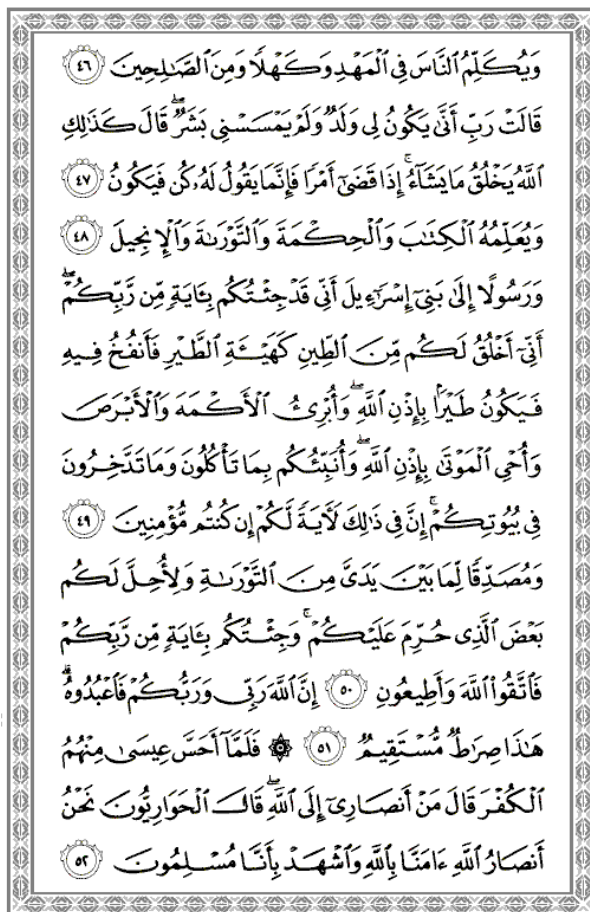 وَيُكَلِّمُ ٱلنَّاسَ فِي ٱلْمَهْدِ وَكَهْلًا وَمِنَ ٱلصَّٰلِحِينَ ٤٦
قَالَتْ رَبِّ أَنَّىٰ يَكُونُ لِي وَلَدٌ وَلَمْ يَمْسَسْنِي بَشَرٌۖ قَالَ كَذَٰلِكِ
ٱللَّهُ يَخْلُقُ مَا يَشَآءُۚ إِذَا قَضَىٰٓ أَمْرًا فَإِنَّمَا يَقُولُ لَهُۥ كُن فَيَكُونُ ٤٧
وَيُعَلِّمُهُ ٱلْكِتَٰبَ وَٱلْحِكْمَةَ وَٱلتَّوْرَىٰةَ وَٱلْإِنجِيلَ ٤٨
وَرَسُولًا إِلَىٰ بَنِيٓ إِسْرَٰٓءِيلَ أَنِّي قَدْ جِئْتُكُم بِـَٔايَةٍ مِّن رَّبِّكُمْۖ
أَنِّيٓ أَخْلُقُ لَكُم مِّنَ ٱلطِّينِ كَهَيْـَٔةِ ٱلطَّيْرِ فَأَنفُخُ فِيهِ
فَيَكُونُ طَيْرًۢا بِإِذْنِ ٱللَّهِۖ وَأُبْرِئُ ٱلْأَكْمَهَ وَٱلْأَبْرَصَ
وَأُحْيِ ٱلْمَوْتَىٰ بِإِذْنِ ٱللَّهِۖ وَأُنَبِّئُكُم بِمَا تَأْكُلُونَ وَمَا تَدَّخِرُونَ
فِي بُيُوتِكُمْۚ إِنَّ فِي ذَٰلِكَ لَـَٔايَةً لَّكُمْ إِن كُنتُم مُّؤْمِنِينَ ٤٩
وَمُصَدِّقًا لِّمَا بَيْنَ يَدَيَّ مِنَ ٱلتَّوْرَىٰةِ وَلِأُحِلَّ لَكُم
بَعْضَ ٱلَّذِي حُرِّمَ عَلَيْكُمْۚ وَجِئْتُكُم بِـَٔايَةٍ مِّن رَّبِّكُمْ
فَٱتَّقُوا۟ ٱللَّهَ وَأَطِيعُونِ ٥٠ إِنَّ ٱللَّهَ رَبِّي وَرَبُّكُمْ فَٱعْبُدُوهُۗ
هَٰذَا صِرَٰطٌ مُّسْتَقِيمٌ ٥١ ۞ فَلَمَّآ أَحَسَّ عِيسَىٰ مِنْهُمُ
ٱلْكُفْرَ قَالَ مَنْ أَنصَارِيٓ إِلَى ٱللَّهِۖ قَالَ ٱلْحَوَارِيُّونَ نَحْنُ
أَنصَارُ ٱللَّهِ ءَامَنَّا بِٱللَّهِ وَٱشْهَدْ بِأَنَّا مُسْلِمُونَ ٥٢